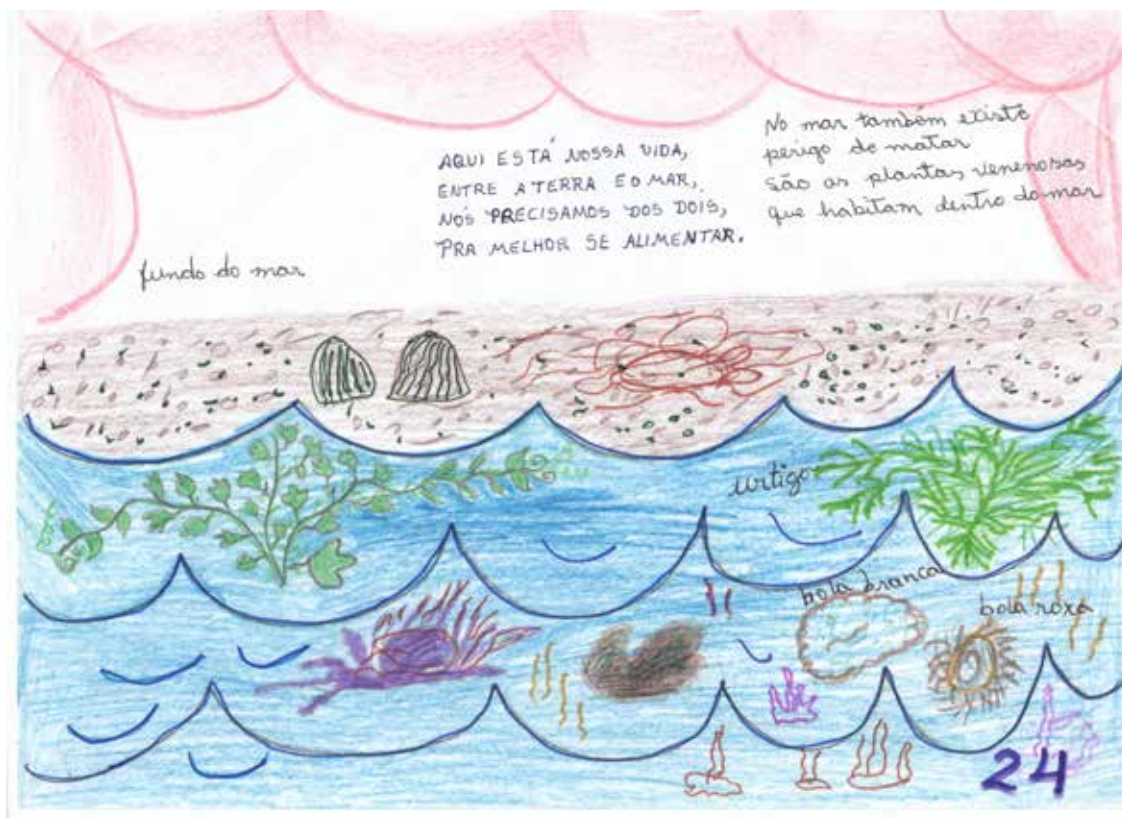 AQUI ESTÁ NOSSA VIDA,
ENTRE A TERRA E O MAR,
NÓS PRECISAMOS DOS DOIS,
PRA MELHOR SE ALIMENTAR.
No mar também existe
perigo de matar
são as plantas venenosas
que habitam dentro do mar
fundo do mar
urtigo
bola branca
bola roxa
24